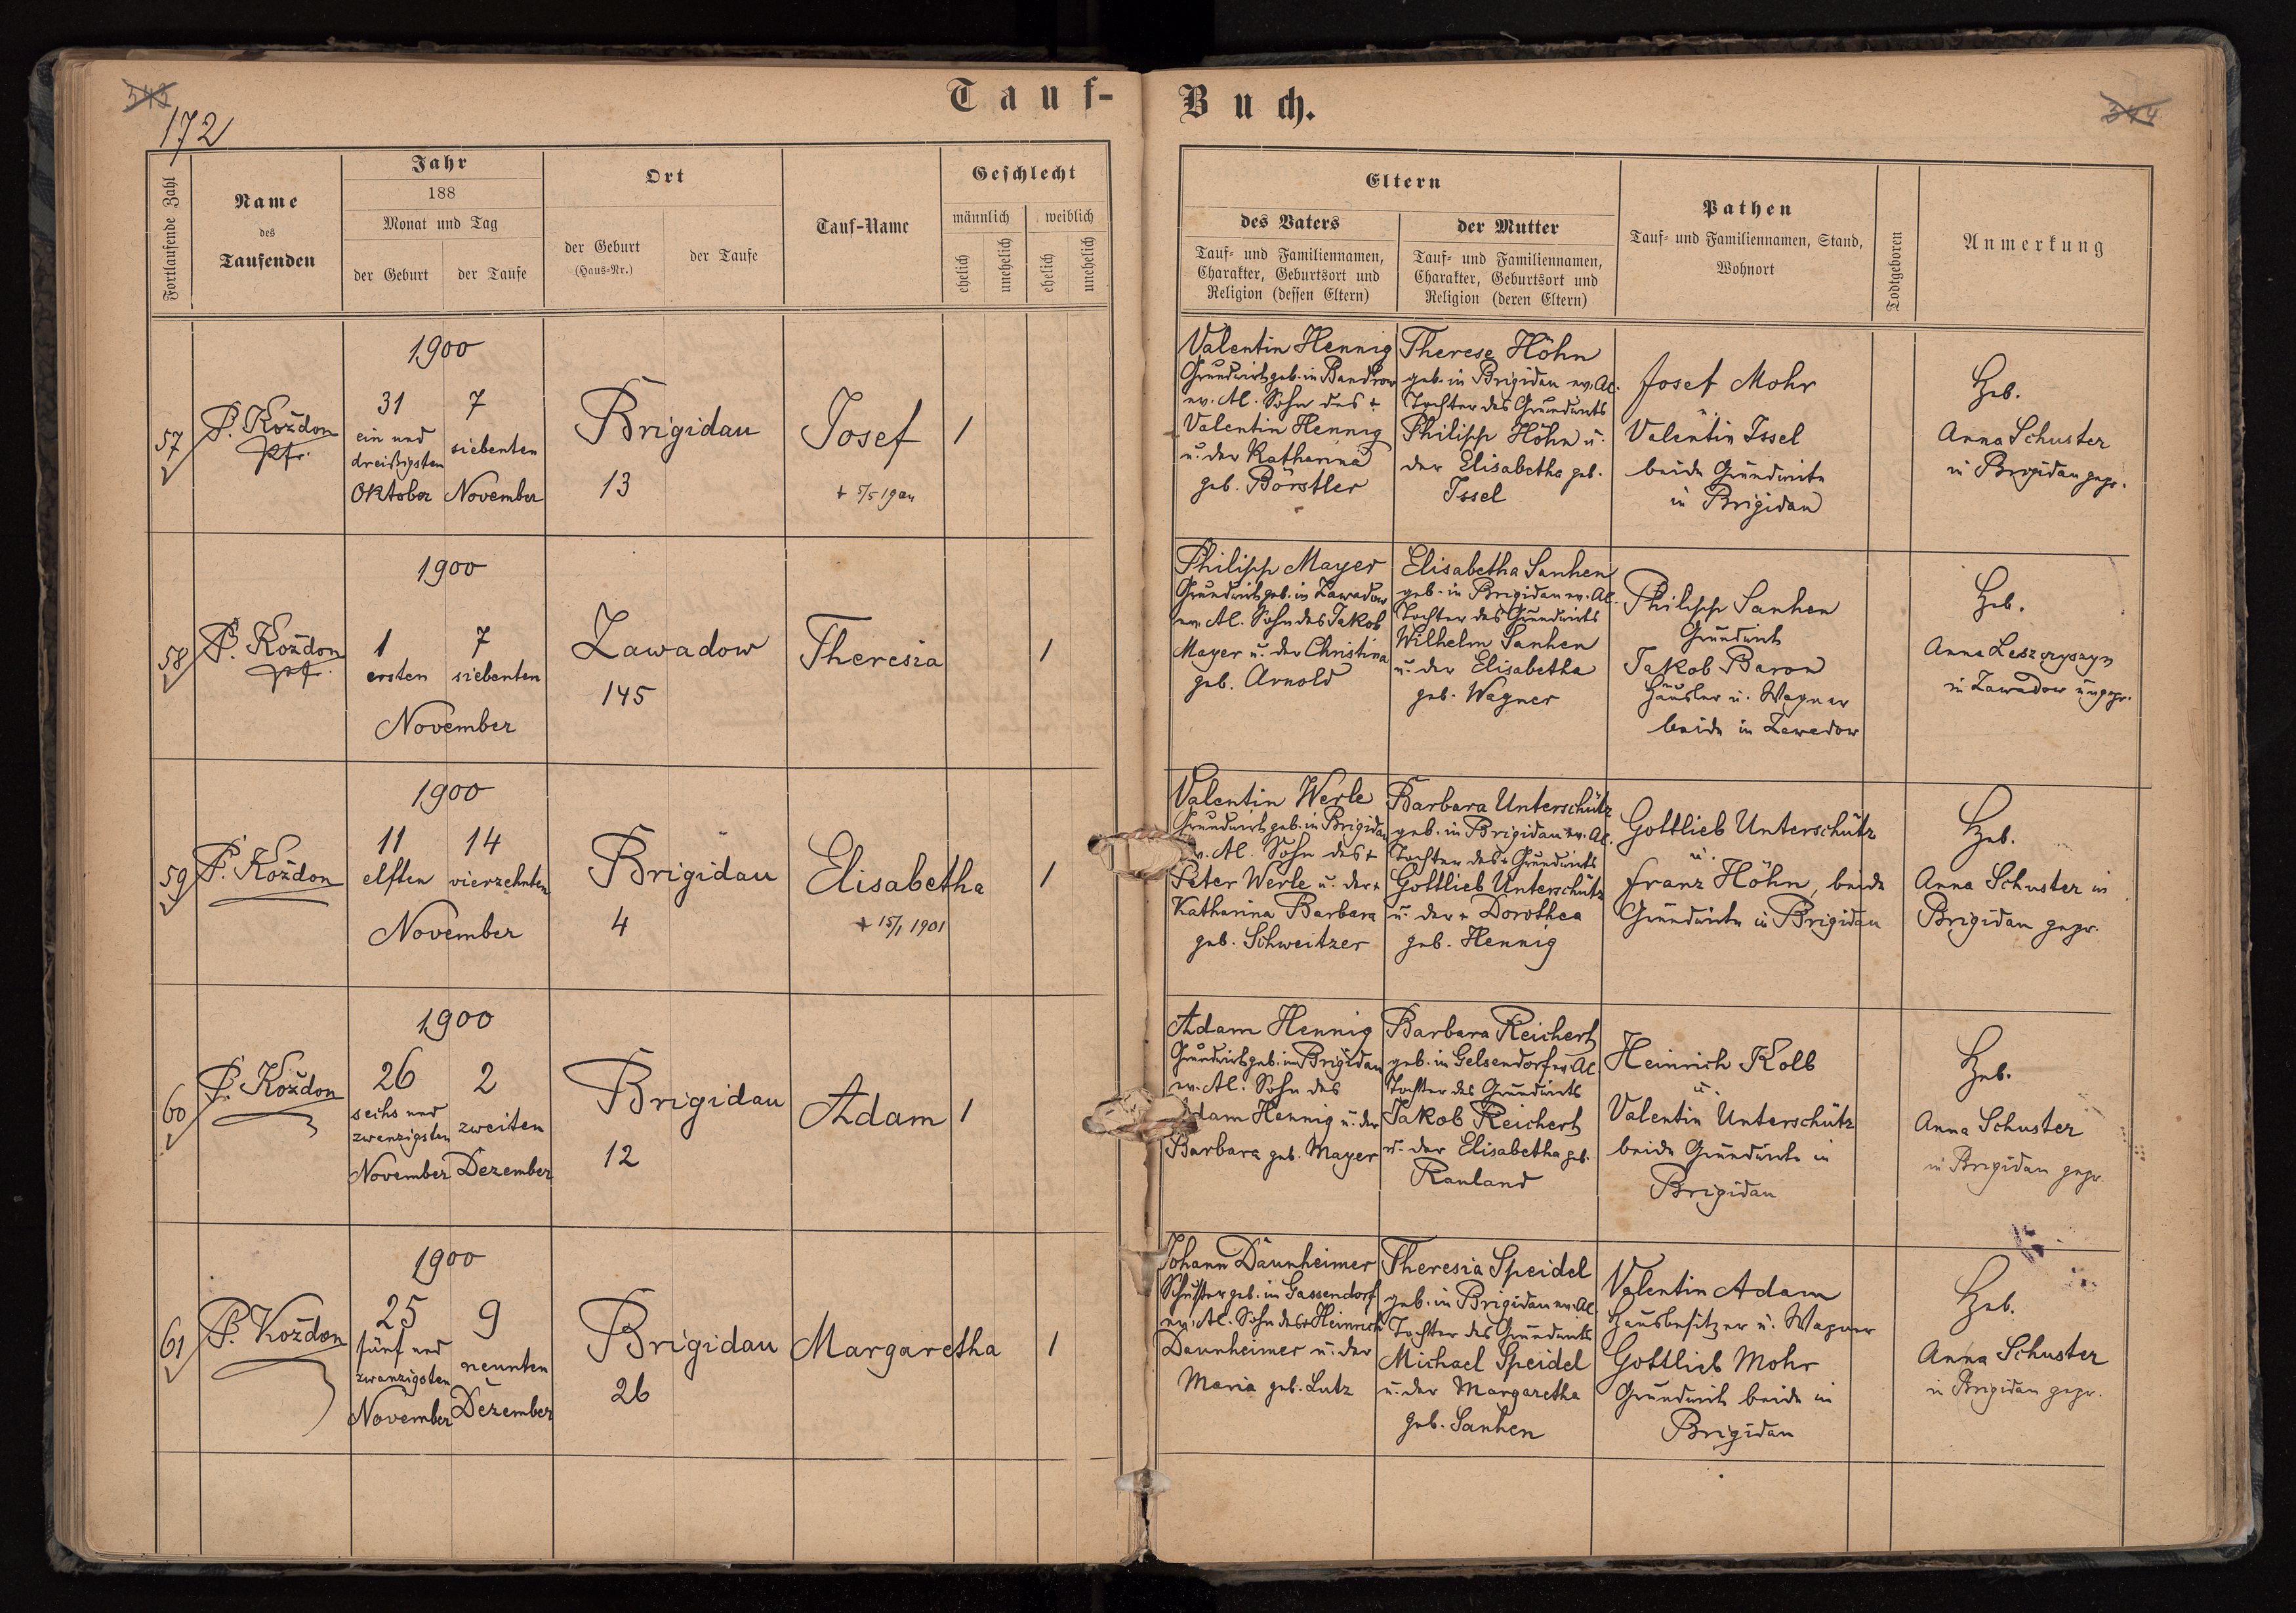 343
344
172
Tauf-
Buch.
Fortlaufende Zahl
Name
des
Taufenden
Jahr
188
Monat und Tag
der Geburt
der Taufe
Ort
der Geburt
(Haus-Nr.)
der Taufe
Tauf-Name
Geschlecht
männlich
weiblich
ehelich
unehelich
ehelich
unehelich
Eltern
des Vaters
Tauf- und Familiennamen,
Charakter, Geburtsort und
Religion (dessen Eltern)
der Mutter
Tauf- und Familiennamen,
Charakter, Geburtsort und
Religion (deren Eltern)
Pathen
Tauf- und Familiennamen, Stand,
Wohnort
Todtgeboren
Anmerkung
57
P. Koždon
Pfr.
1900
31
ein und
dreißigsten
Oktober
7
siebenten
November
Brigidau
13
Josef
+ 5/5 19
1
Valentin Hennig
Grundwirt geb. in Bandrow
ev. A.C. Sohn des +
Valentin Hennig
u. der Katharina
geb. Börstler
Therese Höhn
geb. in Brigidau ev. A.C.
Tochter des Grundwirts
Philipp Höhn u.
der Elisabetha geb.
Issel
Josef Mohr
u.
Valentin Issel
beide Grundwirte
in Brigidau
Heb.
Anna Schuster
in Brigidau gepr.
58
P. Koždon
pfr.
1900
1
ersten
7
siebenten
November
Zawadow
145
Theresia
1
Philipp Mayer
Grundwirt geb. in Zawadow
ev. A.C. Sohn des Jakob
Mayer u. der Christina
geb. Arnold
Elisabetha Sanhen
geb. in Brigidau ev. A.C.
Tochter des Grundwirts
Wilhelm Sanhen
u. der Elisabetha
geb. Wagner
Philipp Sanhen
Grundwirt
Jakob Baron
Häusler u. Wagner
beide in Zawadow
Heb.
Anna Leszczyszyn
in Zawadow ungepr.
59
P. Koždon
1900
11
elften
14
vierzehnten
November
Brigidau
4
Elisabetha
+ 15/1 1901
1
Valentin Werle
Grundwirt geb. in Brigidau
ev. A.C. Sohn des +
Peter Werle u. der +
Katharina Barbara
geb. Schweitzer
Barbara Unterschütz
geb. in Brigidau ev. A.C.
Tochter des + Grundwirts
Gottlieb Unterschütz
u. der + Dorothea
geb. Hennig
Gottlieb Unterschütz
u.
Franz Höhn, beide
Grundwirte in Brigidau
Heb.
Anna Schuster in
Brigidau gepr.
60
P. Koždon
1900
26
sechs und
zwanzigsten
November
2
zweiten
Dezember
Brigidau
12
Adam
1
Adam Hennig
Grundwirt geb. in Brigidau
ev. A.C. Sohn des
Adam Hennig u. der
Barbara geb. Mayer
Barbara Reichert
geb. in Gelsendorf ev. A.C.
Tochter des Grundwirts
Jakob Reichert
u. der Elisabetha geb.
Rauland
Heinrich Kolb
u.
Valentin Unterschütz
beide Grundwirte in
Brigidau
Heb.
Anna Schuster
in Brigidau gepr.
61
P. Koždon
1900
25
fünf und
zwanzigsten
November
9
neunten
Dezember
Brigidau
26
Margaretha
1
Johann Daunheimer
Schuster geb. in Gassendorf
ev. A.C. Sohn des + Heinrich
Daunheimer u. der
Maria geb. Lutz
Theresia Speidel
geb. in Brigidau ev. A.C.
Tochter des Grundwirts
Michael Speidel
u. der Margaretha
geb. Sanhen
Valentin Adam
Hausbesitzer u. Wagner
Gottlieb Mohr
Grundwirt beide in
Brigidau
Heb.
Anna Schuster
in Brigidau gepr.